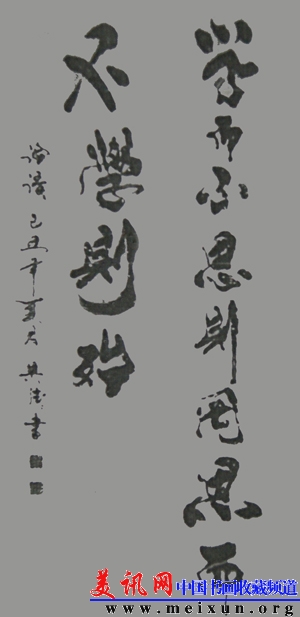 学而不思则罔思而
不学则殆
论语 己丑年夏月 吴涛书
美讯网 中国书画收藏频道
www.meixun.org